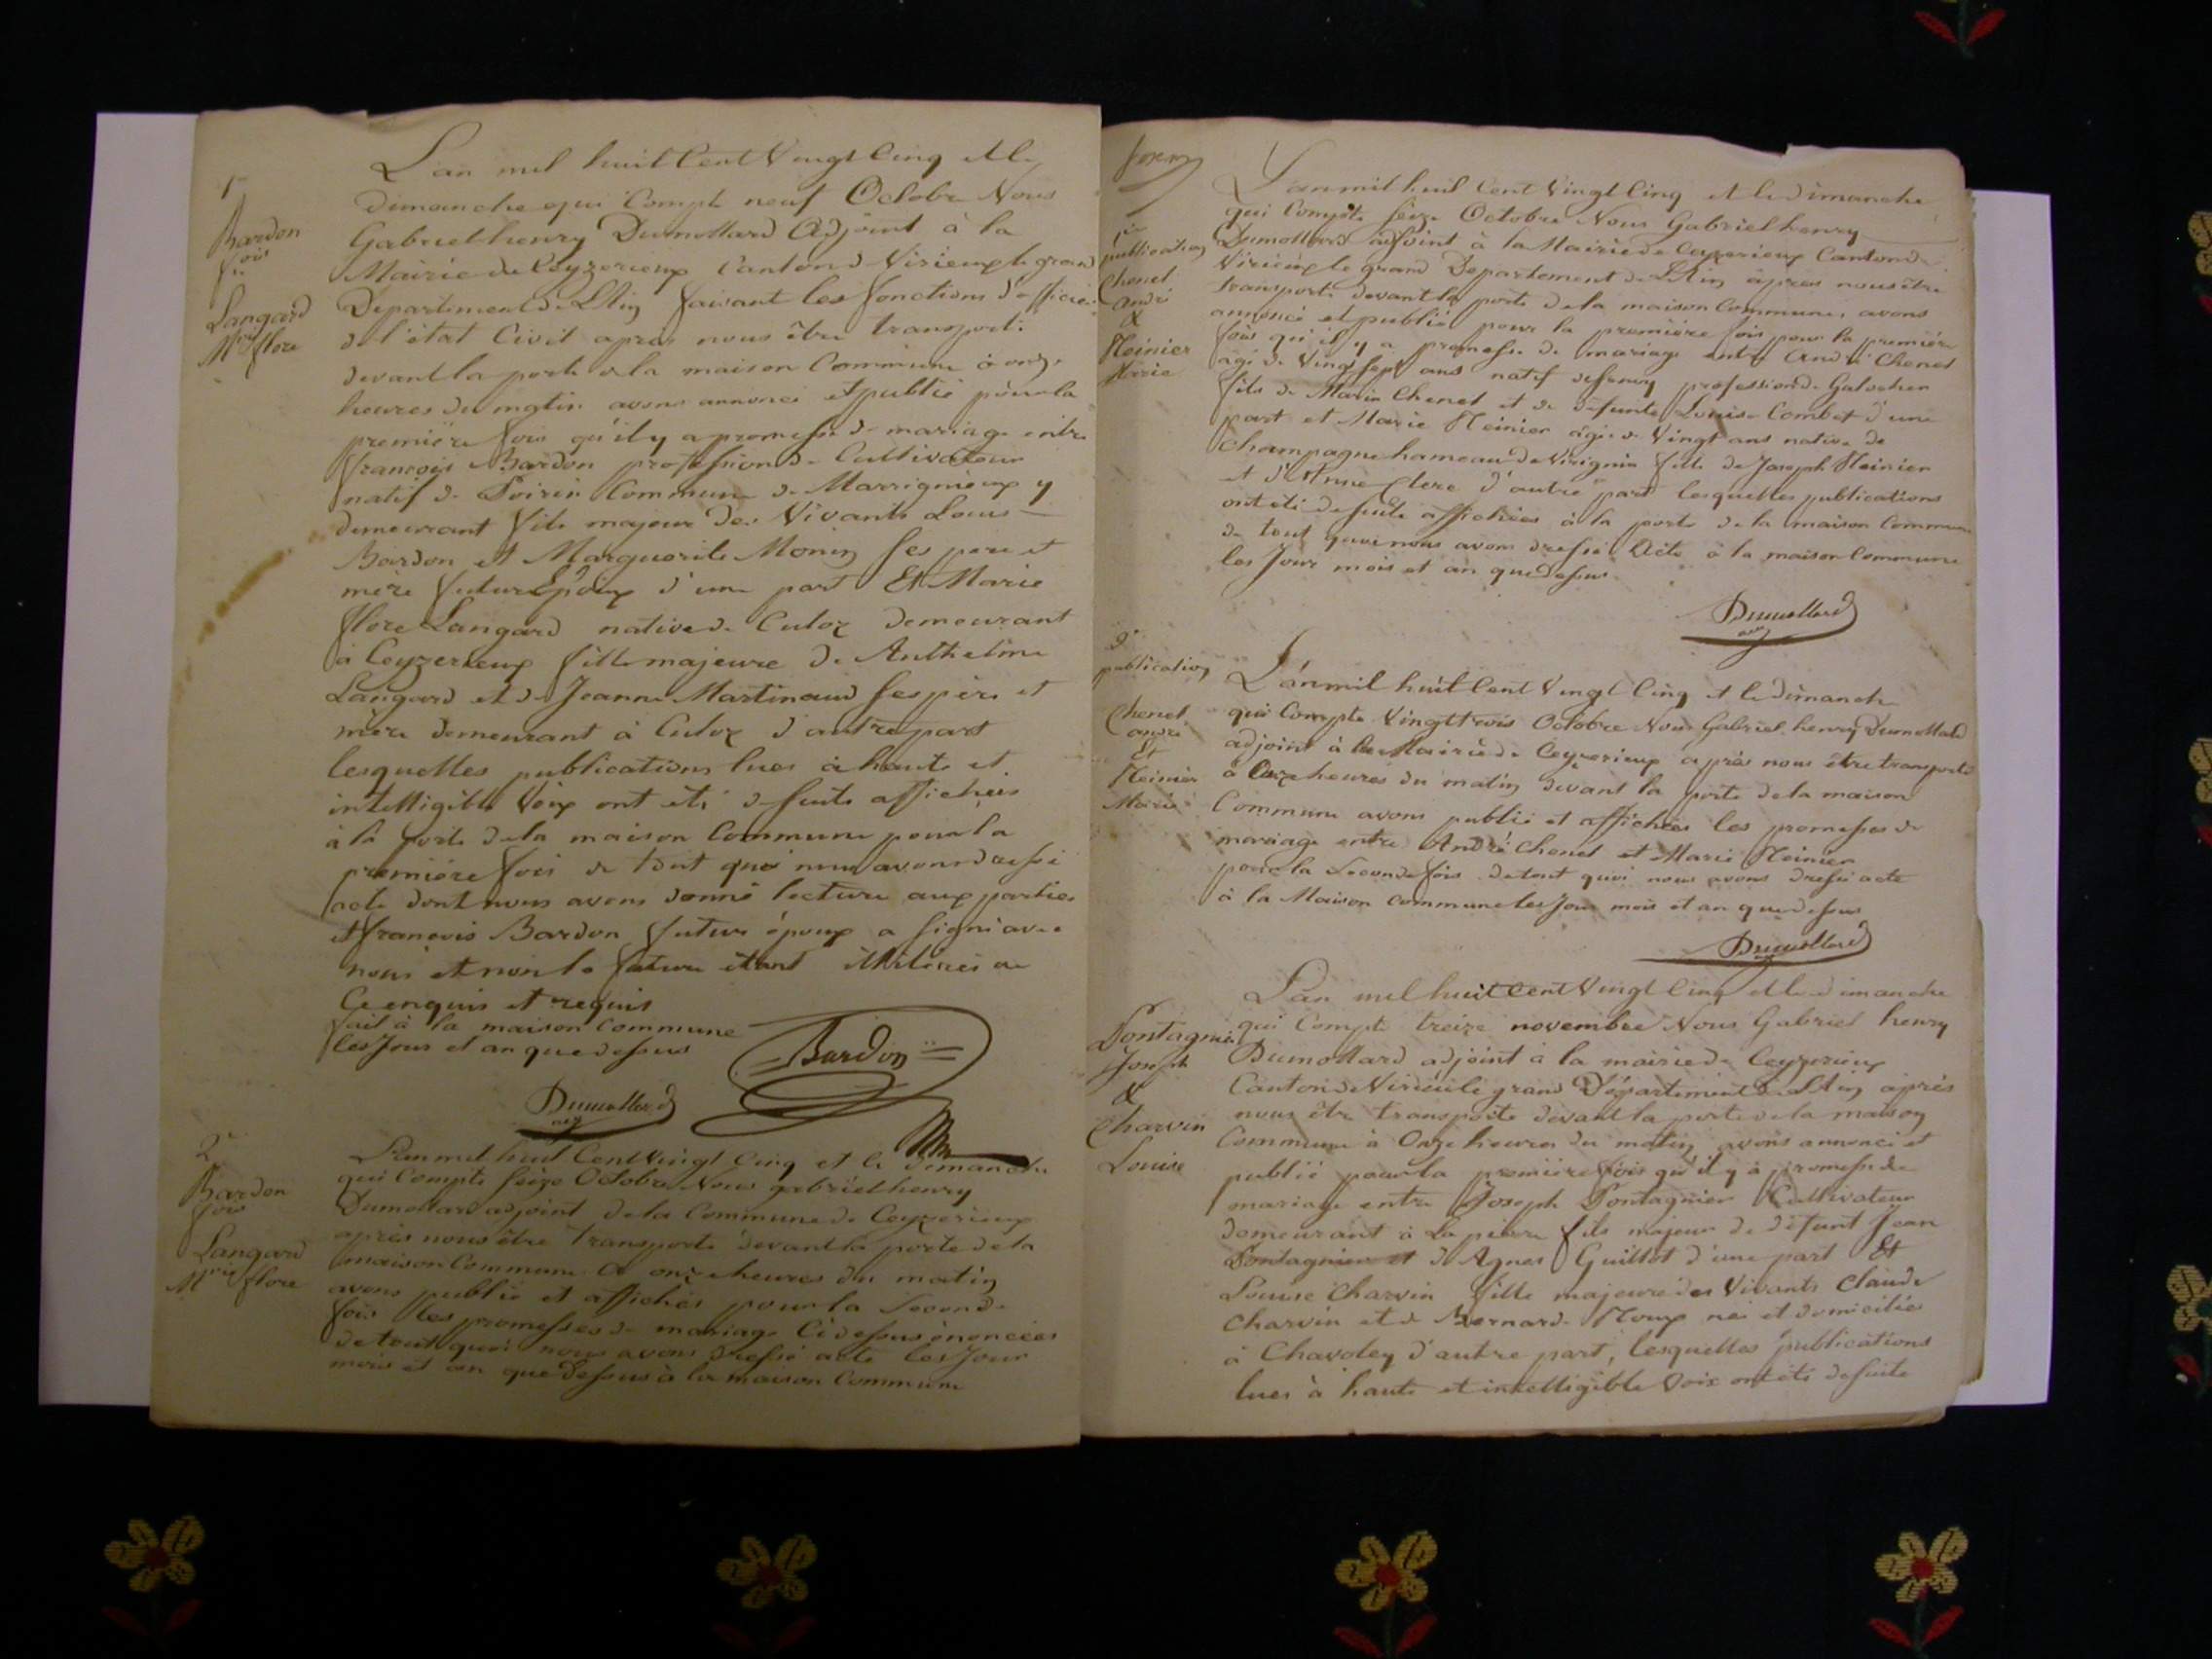 1r
Bardon
fois
&
Langard
Mrie flore
L'an mil huit Cent Vingt Cinq et le
dimanche qui Compte neuf Octobre Nous
Gabriel henry Dumollard Adjoint à la
Mairie de Ceyzerieux Canton de Virieux le grand
Departement de L'Ain faisant les fonctions d'officier
de l'état Civil apres nous être transporté
devant la porte de la maison Commune à onze
heures du matin avons annoncé et publié pour la
premiere fois qu'il y a promesse de mariage entre
francois Bardon profession de Cultivateur
natif de Poirin Commune de Marrignieux y
demeurant fils majeur des Vivants Louis
Bardon et Marguerite Monin ses pere et
mère futur Epoux d'une part Et Marie
flore Langard native de Culoz demeurant
à Ceyzerieux fille majeure de Anthelme
Langard et de Jeanne Martinaud ses père et
mère demeurant à Culoz d'autre part
lesquelles publications lues à haute et
intelligible Voix ont été de suite affichées
à la porte de la maison Commune pour la
première fois de tout quoi nous avons dressé
acte dont nous avons donné lecture aux parties
et francois Bardon futur époux a signé avec
nous et non la future étant illiterée de
Ce enquis et requis
fait à la maison commune
les Jour et an que dessus
Bardon
Dumollard
adj
2e
Bardon
fois
Langard
Mrie flore
L'an mil huit Cent Vingt Cinq et le dimanche
qui Compte seize Octobre Nous gabriel henry
Dumollard adjoint de la Commune de Ceyzerieux
après nous être transporté devant la porte de la
maison Commune à onze heures du matin
avons publié et affichés pour la Seconde
fois les promesses de mariage Ci dessus énoncées
de tout quoi nous avons dressé acte les Jour
mois et an que Dessus à la maison Commune
1re
publication
Chenel
André
&
Meinier
Marie
L'an mil huit Cent Vingt Cinq et le dimanche
qui Compte seize Octobre Nous Gabriel henry
Dumollard adjoint à la Mairie de Ceyzerieux Canton de
Virieux le grand Departement de L'Ain après nous être
transporté devant la porte de la maison Commune, avons
annoncé et publié pour la première fois pour la première
fois qu'il y a promesse de mariage entre André Chenel
âgé de Vingt sept ans natif de profession de Galocher
fils de Marin Chenel et de défunte Louise Combet d'une
part et Marie Meinier âgée de Vingt ans native de
Champagne hameau de Virignin fille de Joseph Meinier
et d'Anne Clerc d'autre part lesquelles publications
ont été de suite affichées à la porte de la maison Commune
de tout quoi nous avons dressé Acte à la maison Commune
les Jour mois et an que Dessus
Dumollard
adj
2e
publication
Chenel
andré
Et
Meinier
Marie
L'an mil huit Cent Vingt Cinq et le dimanche
qui Compte Vingt trois Octobre Nous Gabriel henry Dumollard
adjoint à la Mairie de Ceyzerieux après nous être transporté
à Onze heures du matin devant la porte de la maison
Commune avons publié et affichées les promesses de
mariage entre André Chenel et Marie Meinier
pour la Seconde fois de tout quoi nous avons dressé acte
à la Maison commune les Jour mois et an que dessus
Dumollard
Pontagnier
Joseph
&
Charvin
Louise
L'an mil huit Cent Vingt Cinq et le dimanche
qui Compte treize novembre Nous Gabriel henry
Dumollard adjoint à la mairie de Ceyzerieux
Canton de Virieu le grand Département de L'Ain après
nous être transporté devant la porte de la maison
Commune à Onze heures du matin avons annoncé et
publié pour la première fois qu'il y à promesse de
mariage entre Joseph Pontagnier Cultivateur
demeurant à La pierre fils majeur de défunt Jean
Pontagnier et d'Agnes Guillot d'une part Et
Louise Charvin fille majeure des Vivants Claude
Charvin et de Bernarde Roux née et domiciliée
à Chavoley d'autre part, lesquelles publications
lues à haute et intelligible Voix ont été de suite